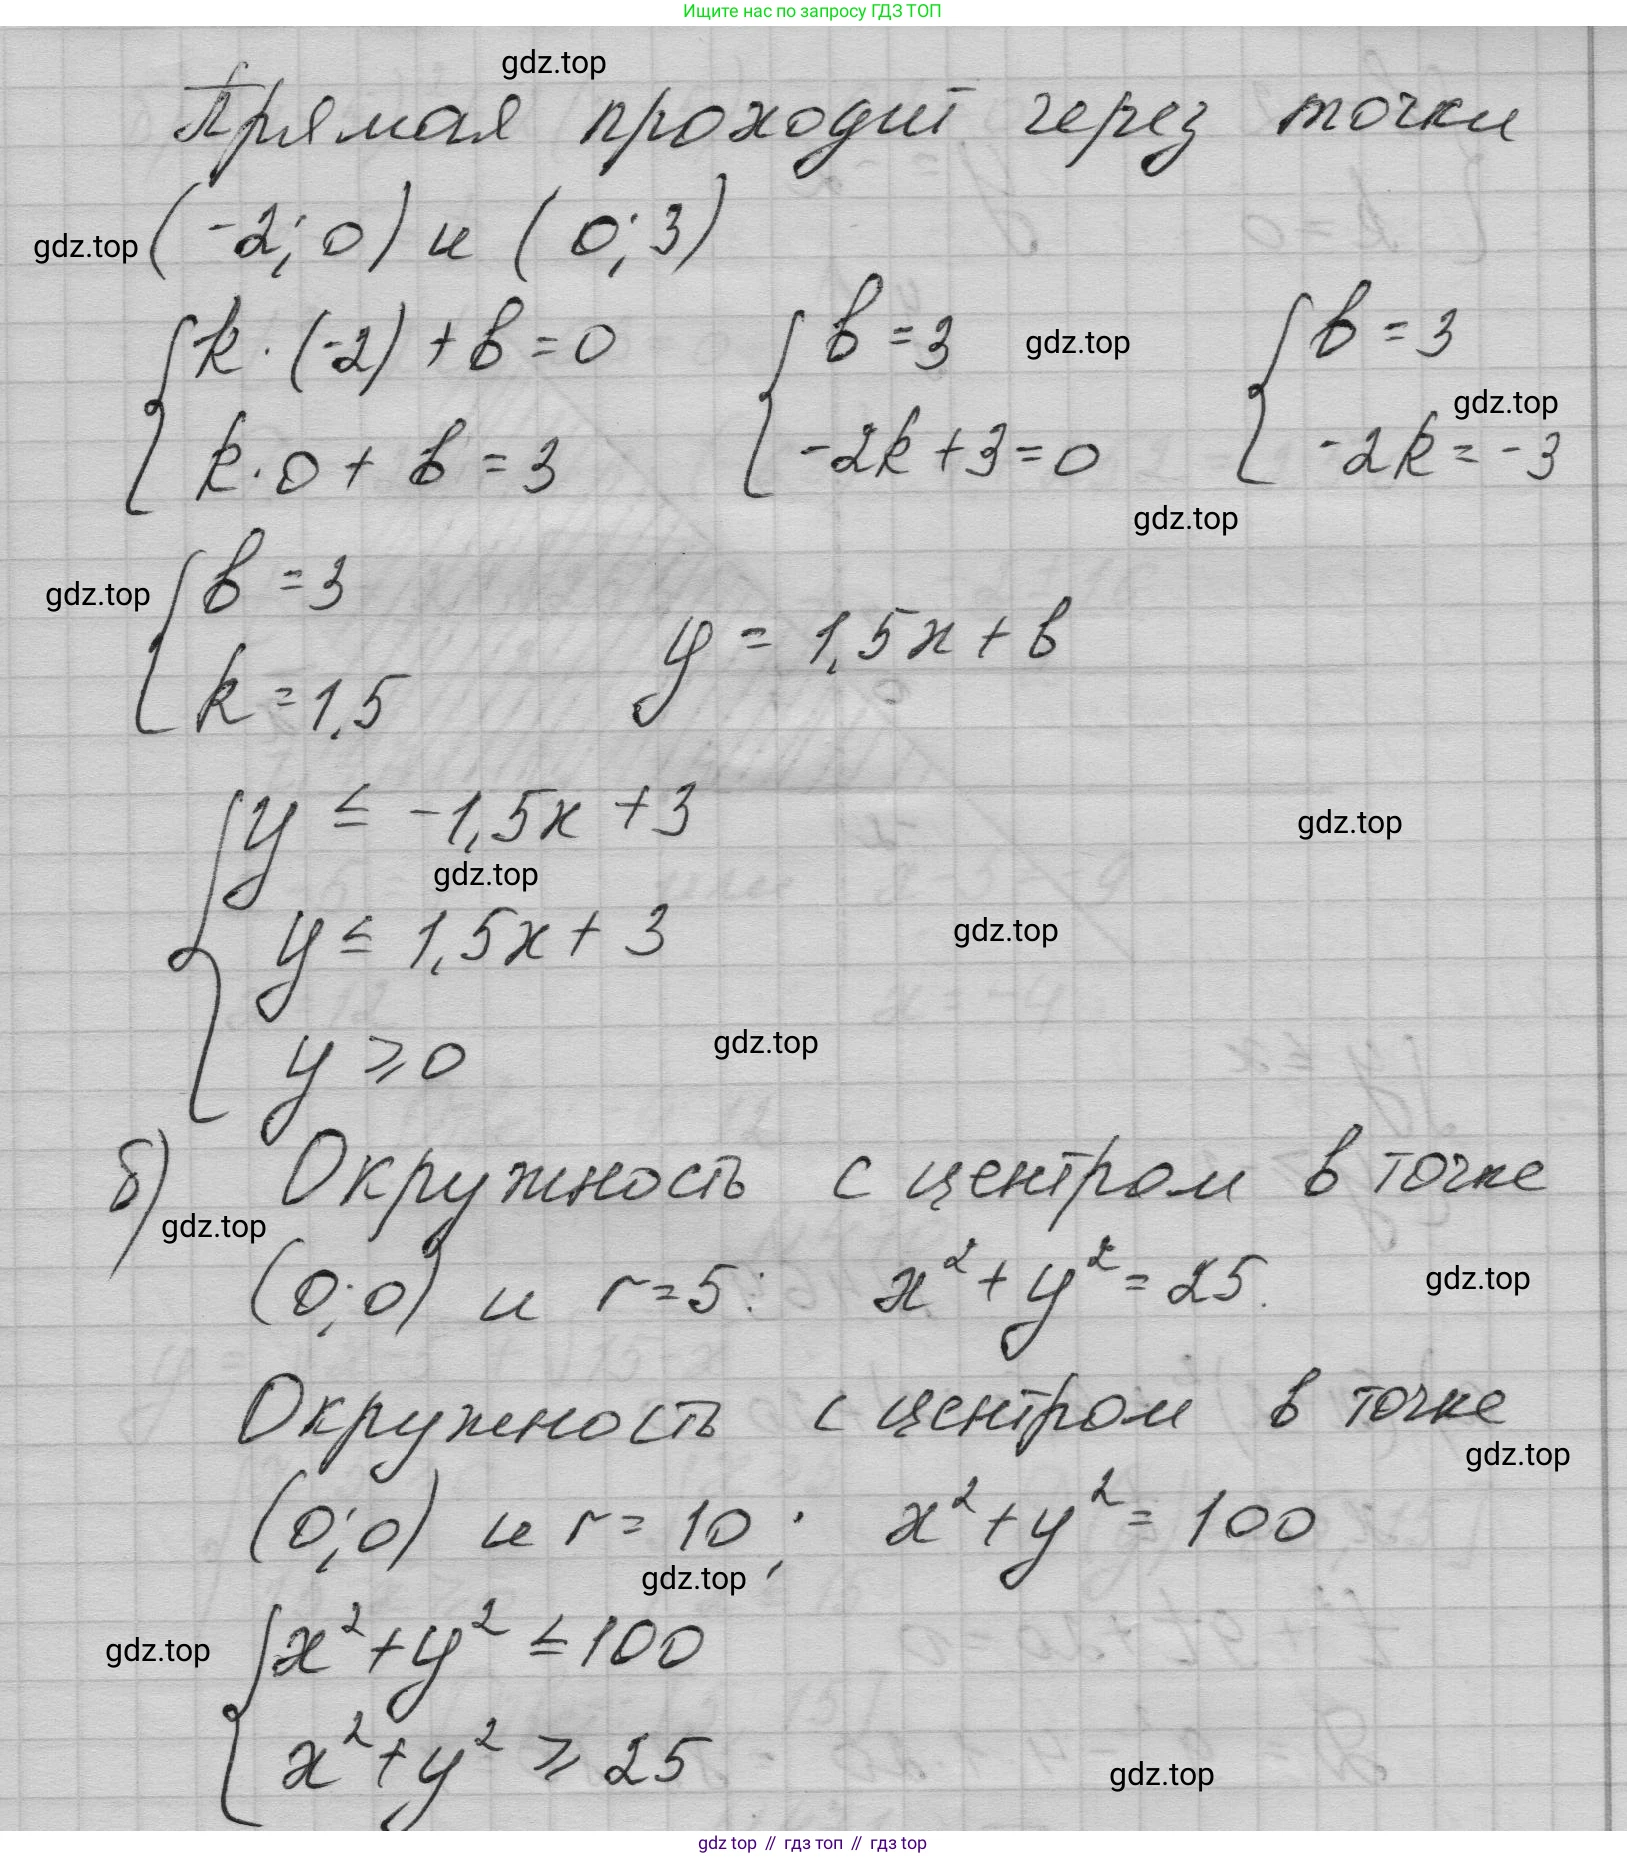 Ищите нас по запросу ГДЗ ТОП
gdz.top
Прямая проходит через точки
gdz.top (-2; 0) и (0; 3)
{ k · (-2) + b = 0 { b = 3 gdz.top { b = 3
gdz.top
k · 0 + b = 3 -2k + 3 = 0 -2k = -3
gdz.top
gdz.top { b = 3
y = 1,5x + b
k = 1,5
{ y ≤ -1,5x + 3
gdz.top
gdz.top
y ≤ 1,5x + 3
gdz.top
y ≥ 0
gdz.top
б) Окружность с центром в точке
gdz.top
(0; 0) и r = 5: x² + y² = 25.
gdz.top
Окружность с центром в точке
gdz.top
(0; 0) и r = 10; x² + y² = 100
gdz.top
gdz.top { x² + y² ≤ 100
x² + y² ≥ 25
gdz.top
gdz top // гдз топ // гдз top